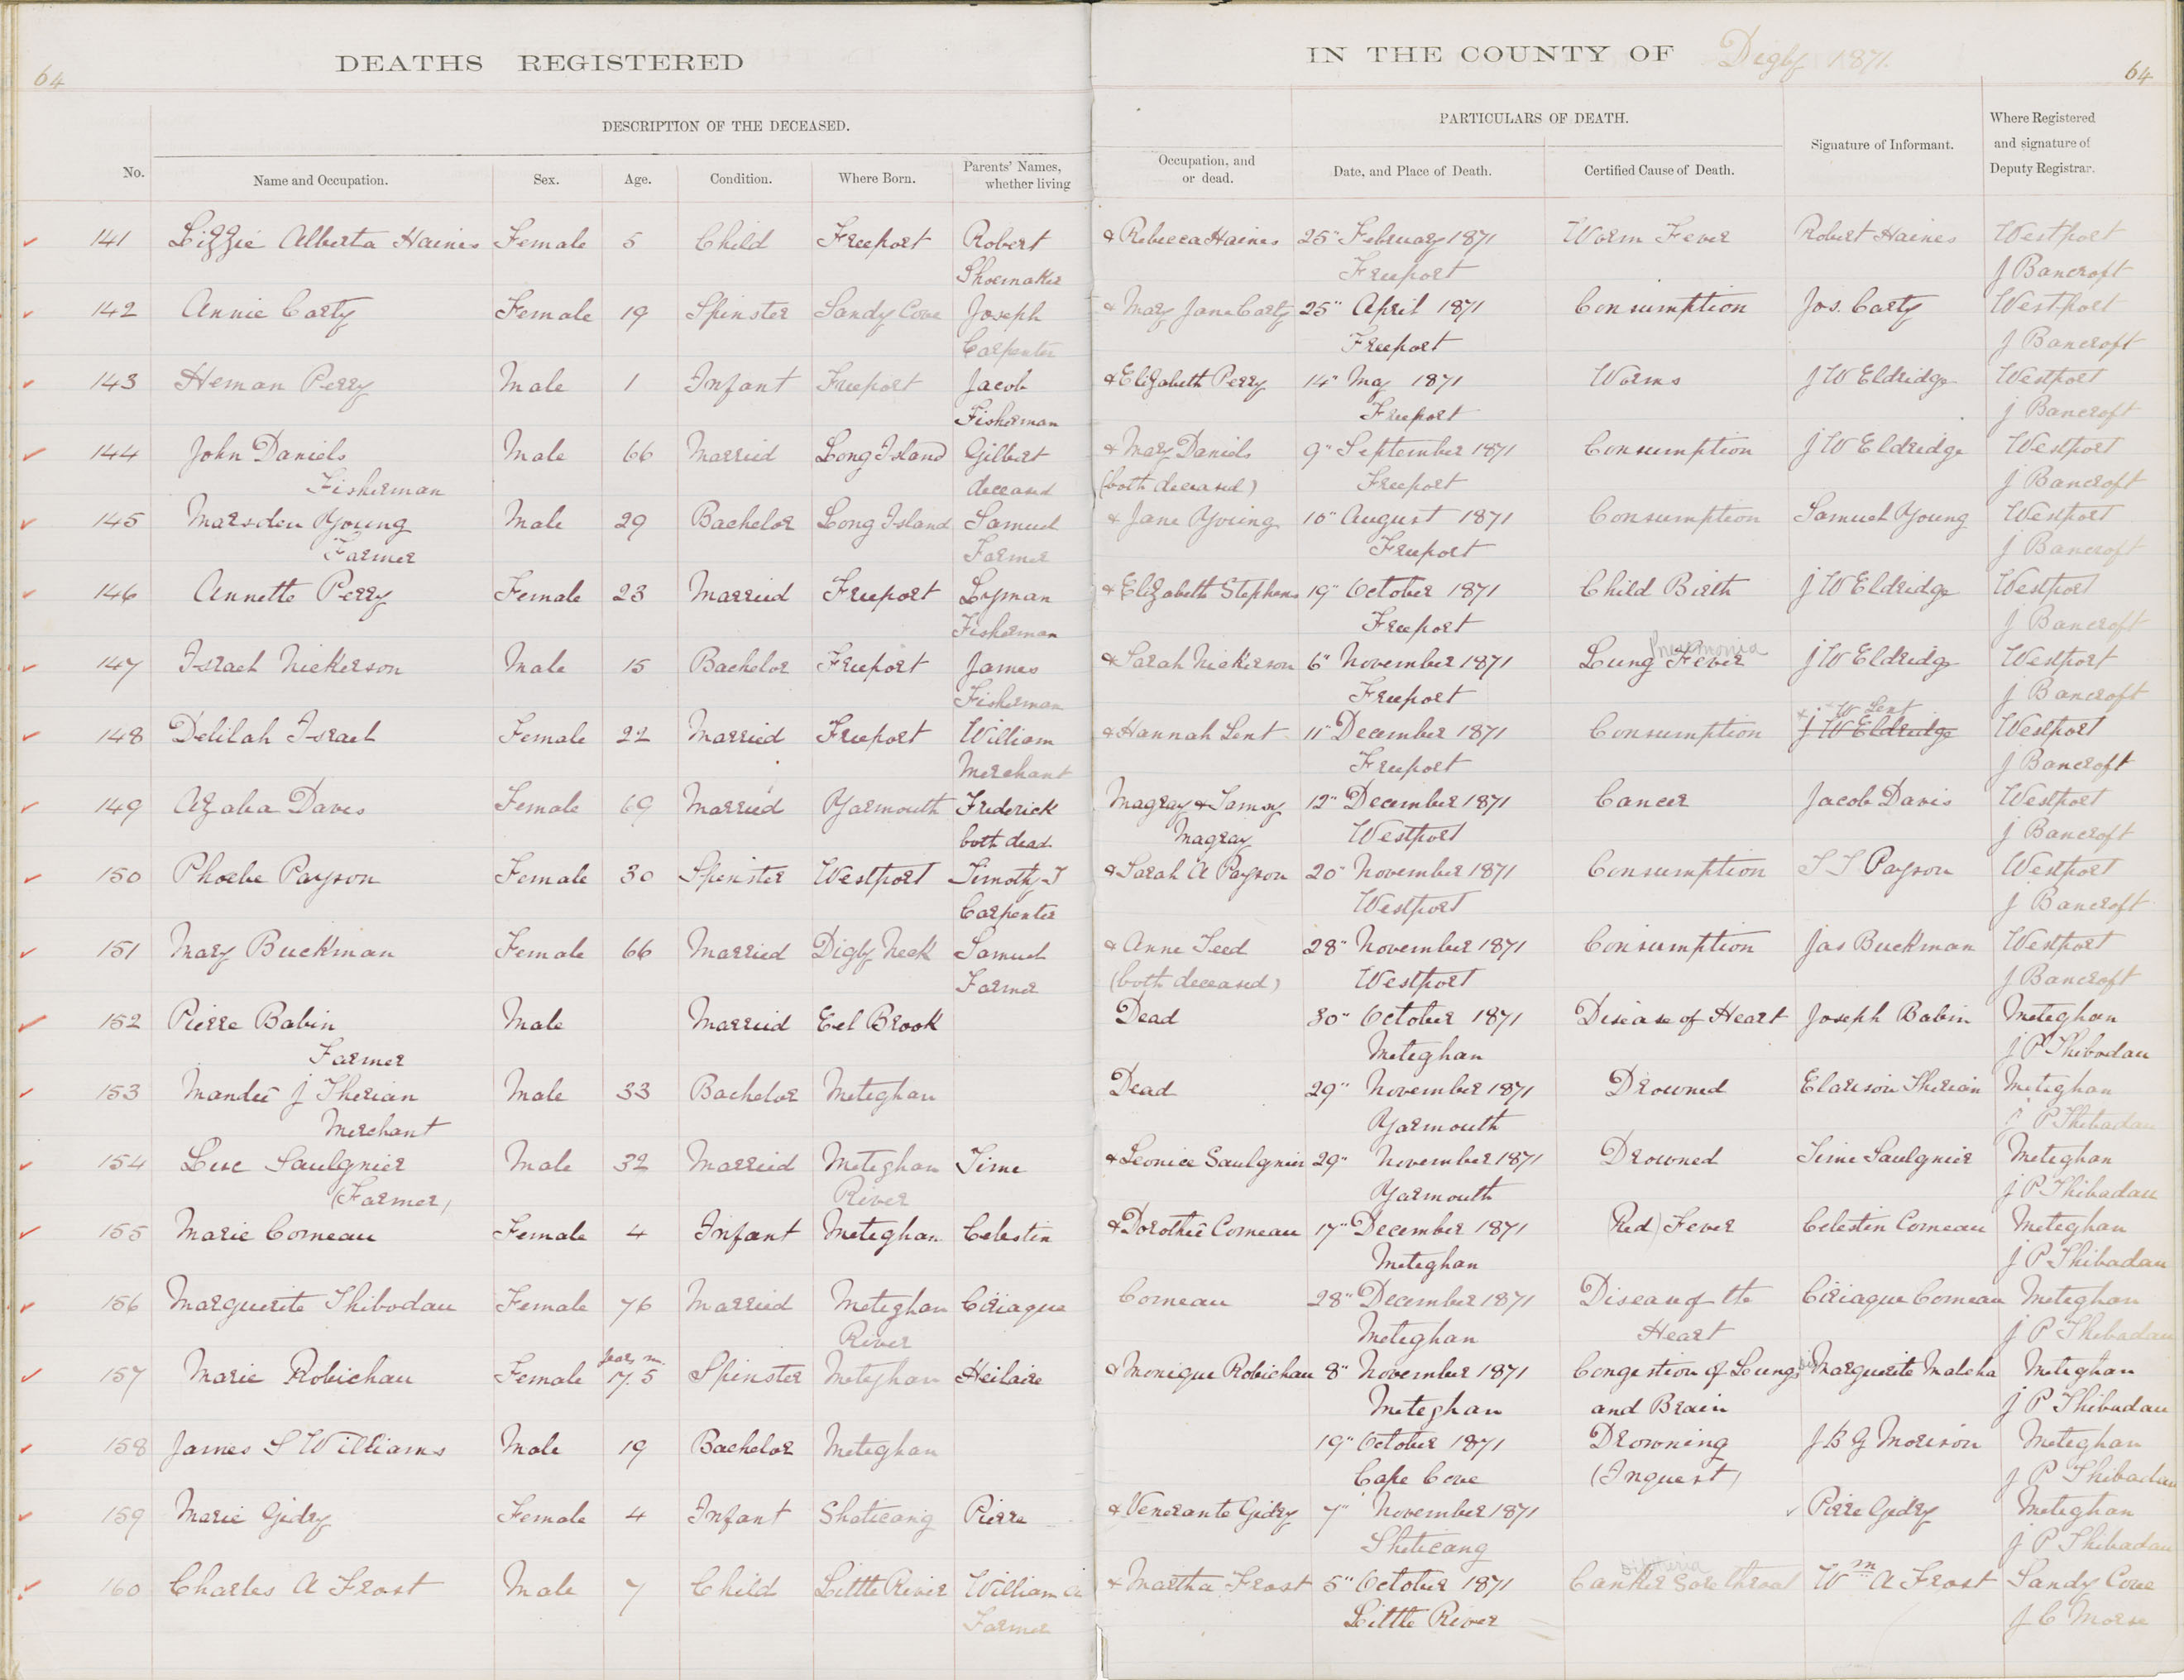 64
DEATHS REGISTERED IN THE COUNTY OF Digby 1871.
64
DESCRIPTION OF THE DECEASED. PARTICULARS OF DEATH.
No. Name and Occupation. Sex. Age. Condition. Where Born. Parents' Names, whether living Occupation, and or dead. Date, and Place of Death. Certified Cause of Death. Signature of Informant. Where Registered and signature of Deputy Registrar.
141 Lizzie Alberta Haines Female 5 Child Freeport Robert & Rebecca Haines 25" February 1871 Worm Fever Robert Haines Westport
Shoemaker Freeport J Bancroft
142 Annie Carty Female 19 Spinster Sandy Cove Joseph & Mary Jane Carty 25" April 1871 Consumption Jos. Carty Westport
Carpenter Freeport J Bancroft
143 Heman Perry Male 1 Infant Freeport Jacob & Elizabeth Perry 14" May 1871 Worms J W Eldridge Westport
Fisherman Freeport J Bancroft
144 John Daniels Male 66 Married Long Island Gilbert & Mary Daniels 9" September 1871 Consumption J W Eldridge Westport
Fisherman deceased (both deceased) Freeport J Bancroft
145 Marsden Young Male 29 Bachelor Long Island Samuel & Jane Young 10" August 1871 Consumption Samuel Young Westport
Farmer Farmer Freeport J Bancroft
146 Annette Perry Female 23 Married Freeport Lyman & Elizabeth Stephens 19" October 1871 Child Birth J W Eldridge Westport
Fisherman Freeport J Bancroft
Pneumonia
147 Israel Nickerson Male 15 Bachelor Freeport James & Sarah Nickerson 6" November 1871 Lung Fever J W Eldridge Westport
Fisherman Freeport J Bancroft
W Lent
148 Delilah Israel Female 22 Married Freeport William & Hannah Lent 11" December 1871 Consumption J W Eldridge Westport
Merchant Freeport J Bancroft
149 Azaba Davis Female 69 Married Yarmouth Frederick Magray & Tamsy 12" December 1871 Cancer Jacob Davis Westport
both dead Magray Westport J Bancroft
150 Phoebe Payson Female 30 Spinster Westport Timothy T & Sarah A Payson 20" November 1871 Consumption T T Payson Westport
Carpenter Westport J Bancroft
151 Mary Buckman Female 66 Married Digby Neck Samuel & Anne Teed 28" November 1871 Consumption Jas Buckman Westport
Farmer (both deceased) Westport J Bancroft
152 Pierre Babin Male Married Eel Brook Dead 30" October 1871 Disease of Heart Joseph Babin Meteghan
Farmer Meteghan J P Thibodau
153 Mandée J Therian Male 33 Bachelor Meteghan Dead 29" November 1871 Drowned Elarison Therian Meteghan
Merchant Yarmouth J P Thibadau
154 Luc Saulgnier Male 32 Married Meteghan Time & Leonice Saulgnier 29" November 1871 Drowned Time Saulgnier Meteghan
(Farmer) River Yarmouth J P Thibadau
155 Marie Comeau Female 4 Infant Meteghan Celestin & Dorothée Comeau 17" December 1871 Red) Fever Celestin Comeau Meteghan
Meteghan J P Thibadau
156 Marguerite Thibodau Female 76 Married Meteghan Ciriaque Comeau 28" December 1871 Disease of the Ciriaque Comeau Meteghan
River Meteghan Heart J P Thibadau
years m.
157 Marie Robichau Female 17.5 Spinster Meteghan Heilaire & Monique Robichau 8" November 1871 Congestion of Lungs Marguerite Matcha Meteghan
Meteghan and Brain J P Thibadau
158 James S Williams Male 19 Bachelor Meteghan 19" October 1871 Drowning J B G Morison Meteghan
Cape Cove (Inquest) J P Thibadau
159 Marie Gidry Female 4 Infant Sheticang Pierre & Venerante Gidry 7" November 1871 Pierre Gidry Meteghan
Sheticang J P Thibadau
160 Charles A Frost Male 7 Child Little River William A & Martha Frost 5" October 1871 Canker Sore throat Wm A Frost Sandy Cove
Farmer Little River J C Morse